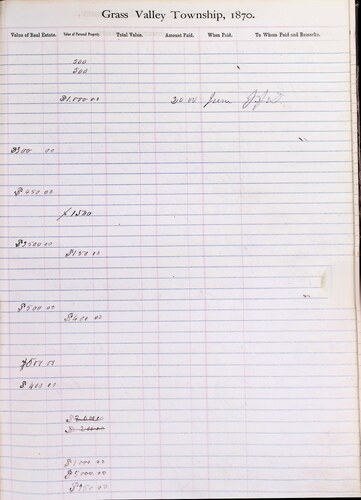 Grass Valley Township, 1870.
Value of Real Estate. Value of Personal Property. Total Value. Amount Paid. When Paid. To Whom Paid and Remarks.
500
500
$1.000 00 20 00 June
$300 00
$450 00
1500
$3500 00
$150 00
$500 00
$400 00
$500 00
$400 00
$1000 00
$5000 00
$950 00